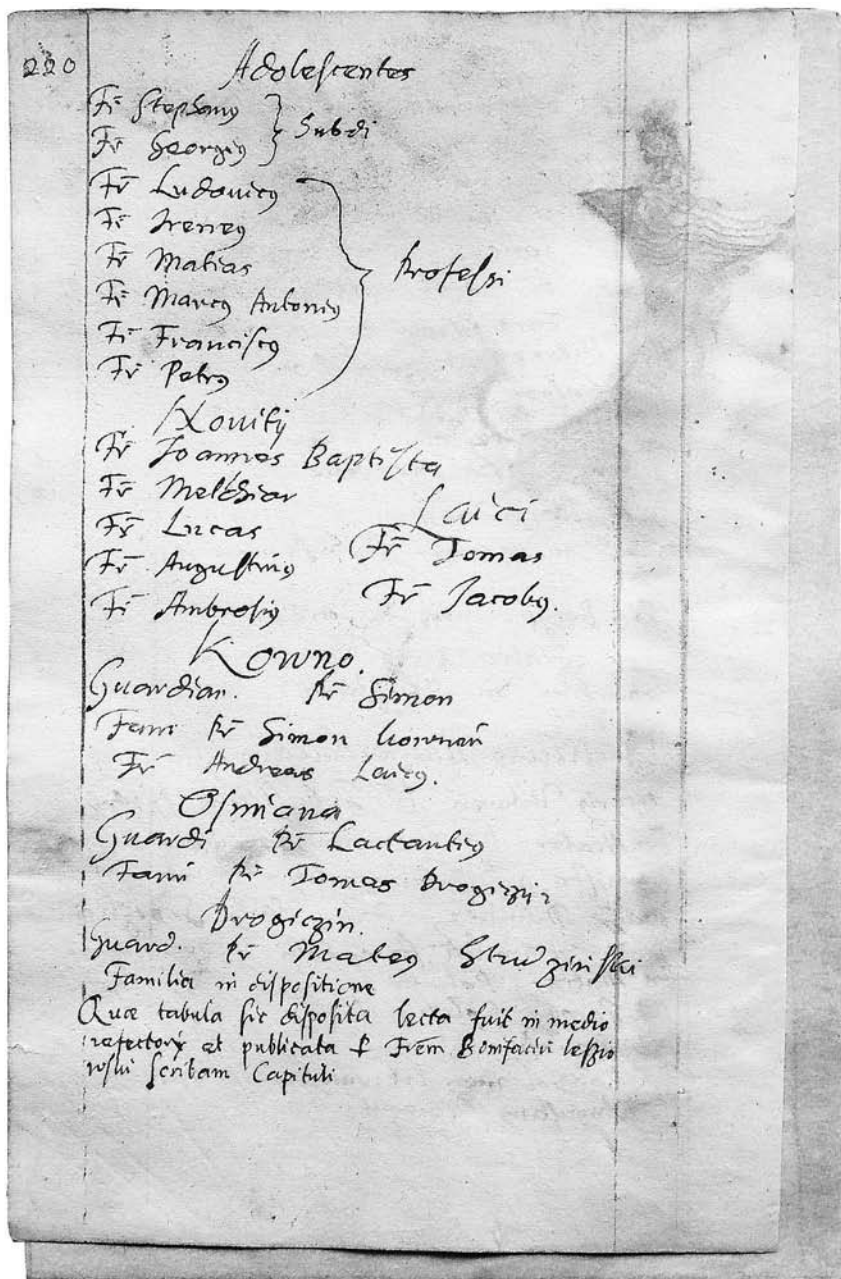 220
Adolescentes
Fr Stephanꝯ
Fr Georgiꝯ
Subdi
Fr Ludovicꝯ
Fr Ireneꝯ
Fr Matias
Fr Marcꝯ Antoniꝯ
Fr Franciscꝯ
Fr Petrꝯ
Professi
Novitij
Fr Joannes Baptista
Fr Melchior
Fr Lucas
Fr Augustinꝯ
Fr Ambrosiꝯ
Laici
Fr Tomas
Fr Jacobꝯ.
Kowno.
Guardian. Pr Simon
Fami Pr Simon
Fr Andreas Laicꝯ.
Osmiana
Guardi Pr Lactantiꝯ
Fami Pr Tomas
Drogiczin.
Guard. Pr Mateꝯ Studzinski
Familia in dispositione
Quæ tabula sic disposita lecta fuit in medio
refectorÿ et publicata Frem Bonifaciū
scribam Capituli